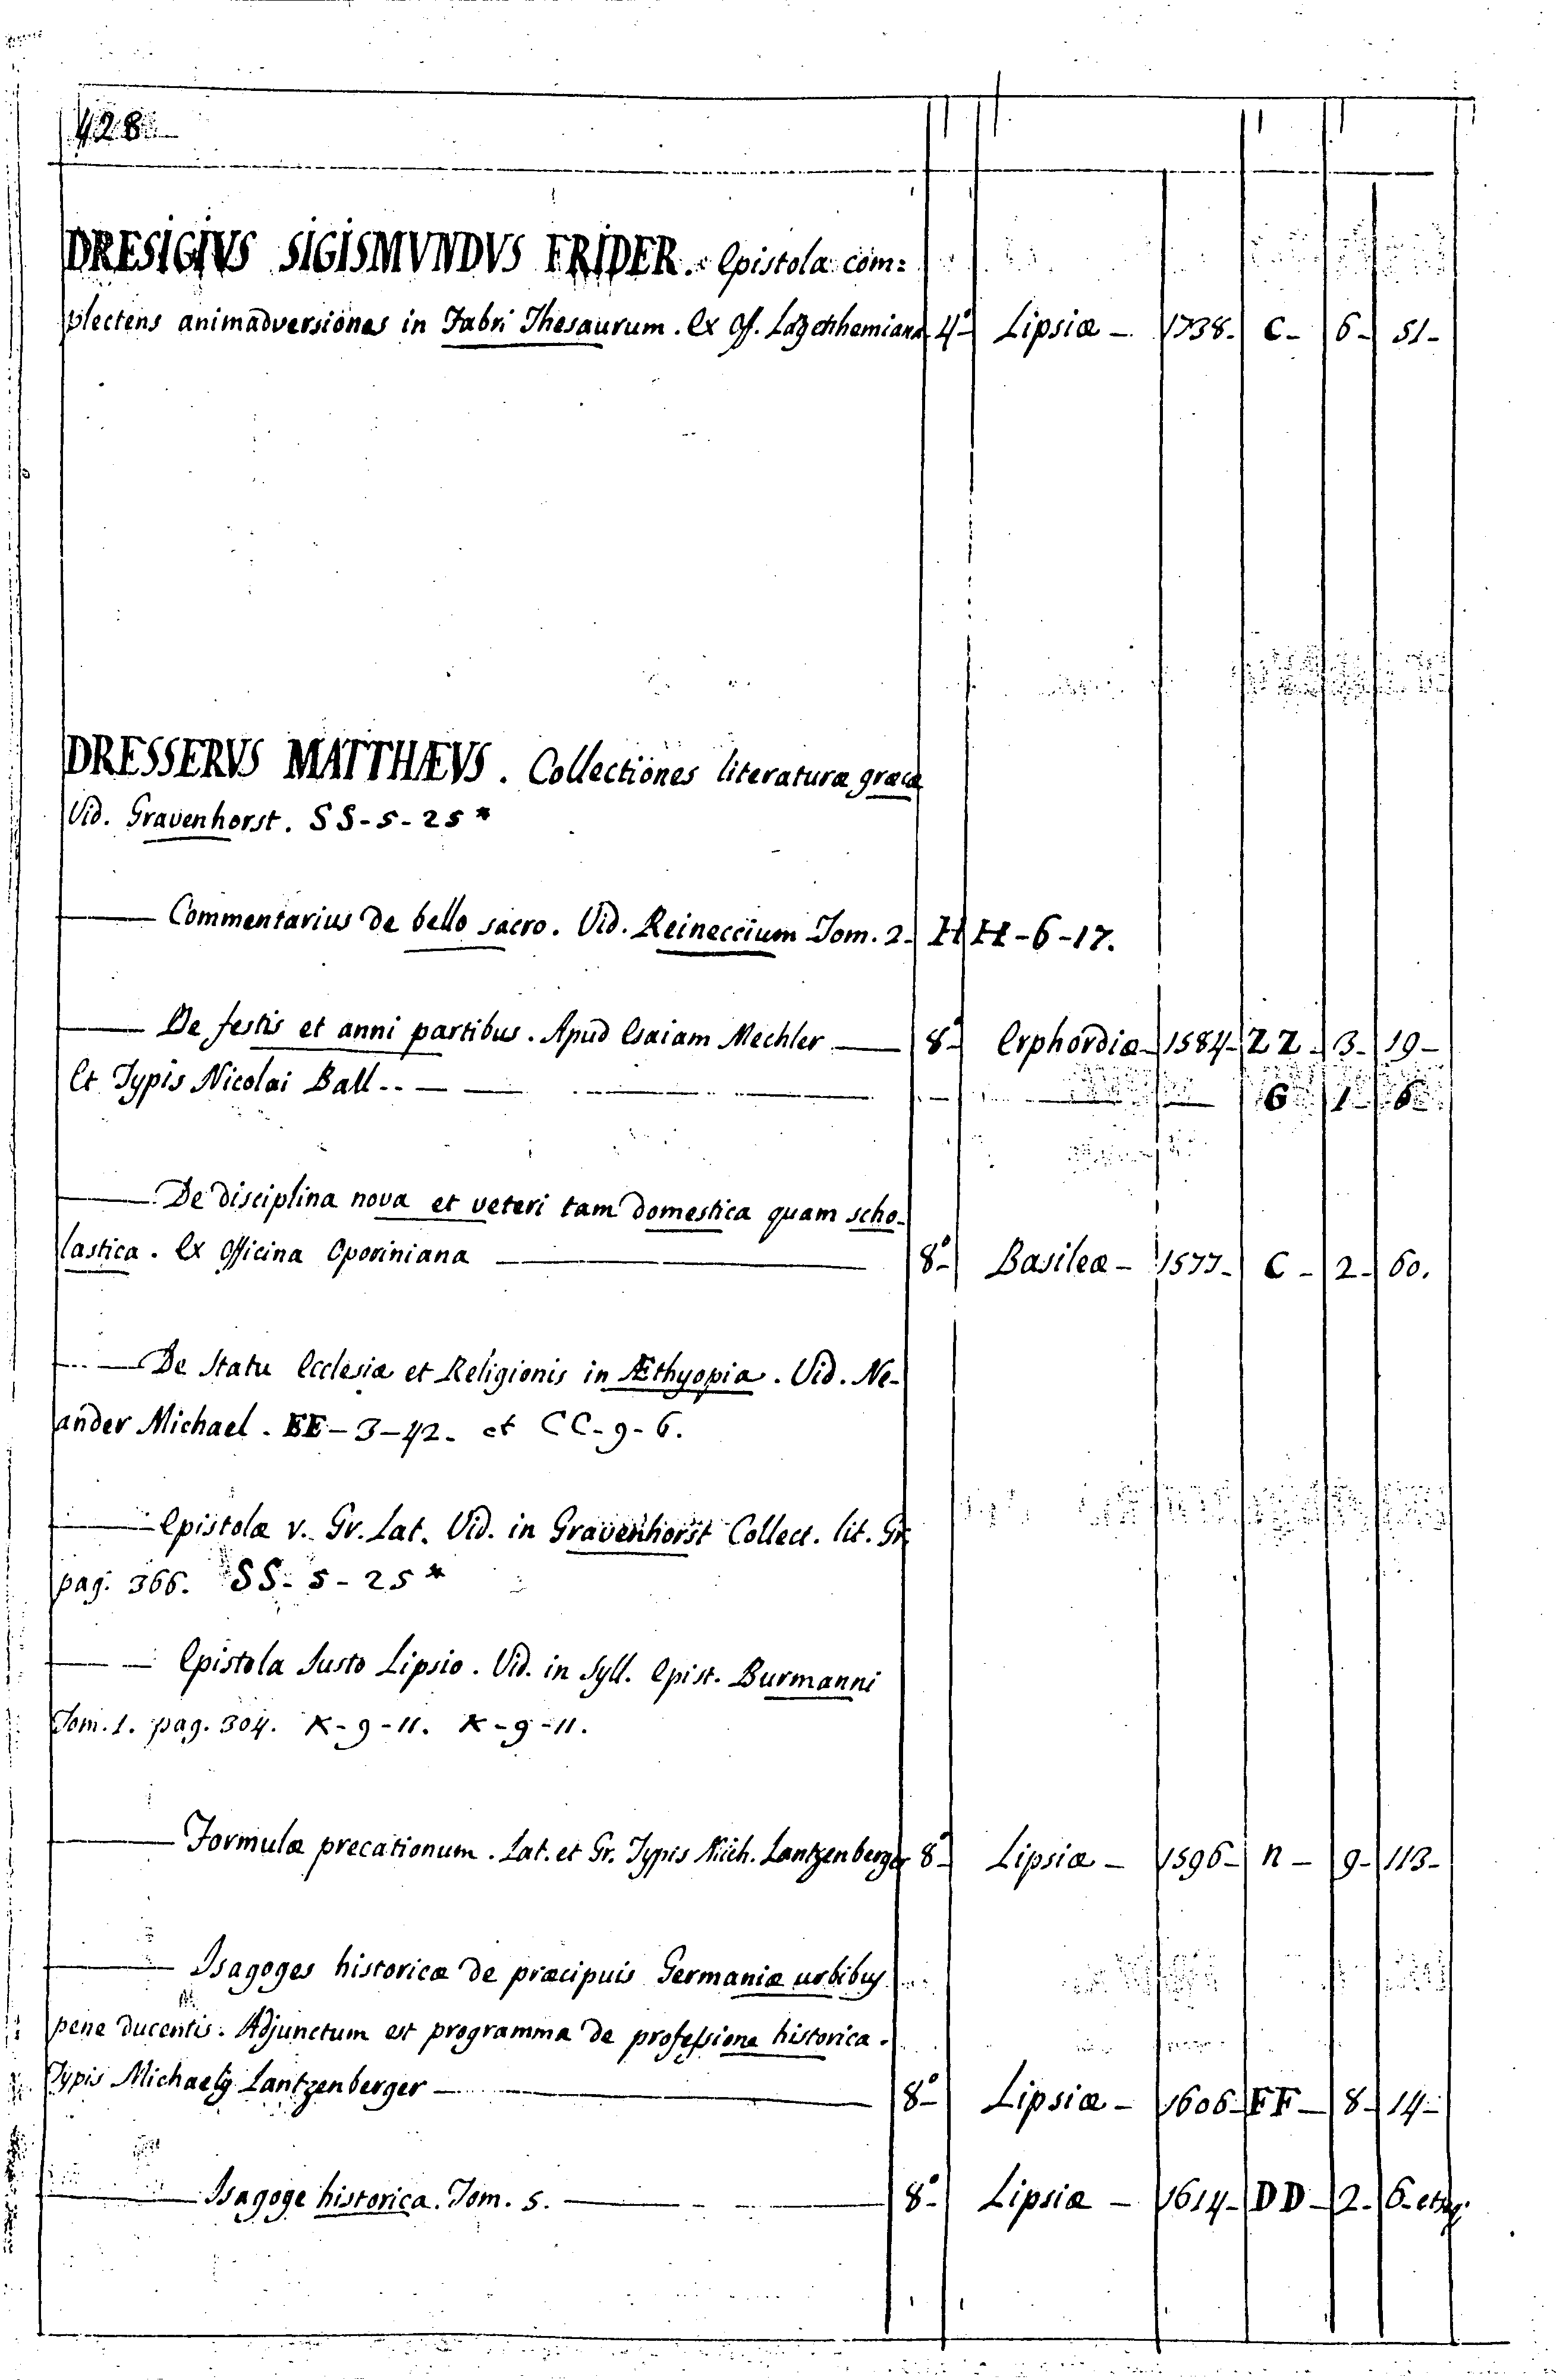 428
DRESIGIVS SIGISMVNDVS FRIDER. Epistola com:
plectens animadversiones in Fabri Thesaurum. Ex Of. 4º Lipsiæ – 1738– C– 6– 51–
DRESSERVS MATTHÆVS. Collectiones literaturæ græcæ
Vid. Gravenhorst. SS-5-25*
—— Commentarius de bello sacro. Vid. Reineccium Tom. 2. HH-6-17.
—— De festis et anni partibus. Apud Esaiam Mechler —— 8º Erphordiæ– 1584– ZZ– 3– 19–
Et Typis Nicolai Ball —— G 1– 6
—— De disciplina nova et veteri tam domestica quam scho-
lastica. Ex Officina Oporiniana —— 8º Basileæ – 1577– C– 2– 60.
—— De Statu Ecclesiæ et Religionis in Æthyopia. Vid. Ne-
ander Michael. EE-3-42. et CC-9-6.
—— Epistolæ v. Gr. Lat. Vid. in Gravenhorst Collect. lit. Gr.
pag. 366. SS-5-25*
—— Epistola Justo Lipsio. Vid. in Syll. Epist. Burmanni
Tom. 1. pag. 304. K-9-11. K-9-11.
—— Formulæ precationum. Lat. et Gr. Typis Mich. Lantzenberger 8º Lipsiæ – 1596– n– 9– 113–
—— Isagoges historicæ de præcipuis Germaniæ urbibus
pene ducentis. Adjunctum est programma de professione historica.
Typis Michaelis Lantzenberger —— 8º Lipsiæ – 1606– FF– 8– 14–
—— Isagoge historica. Tom. 5. —— 8º Lipsiæ – 1614– DD– 2– 6– et seq.